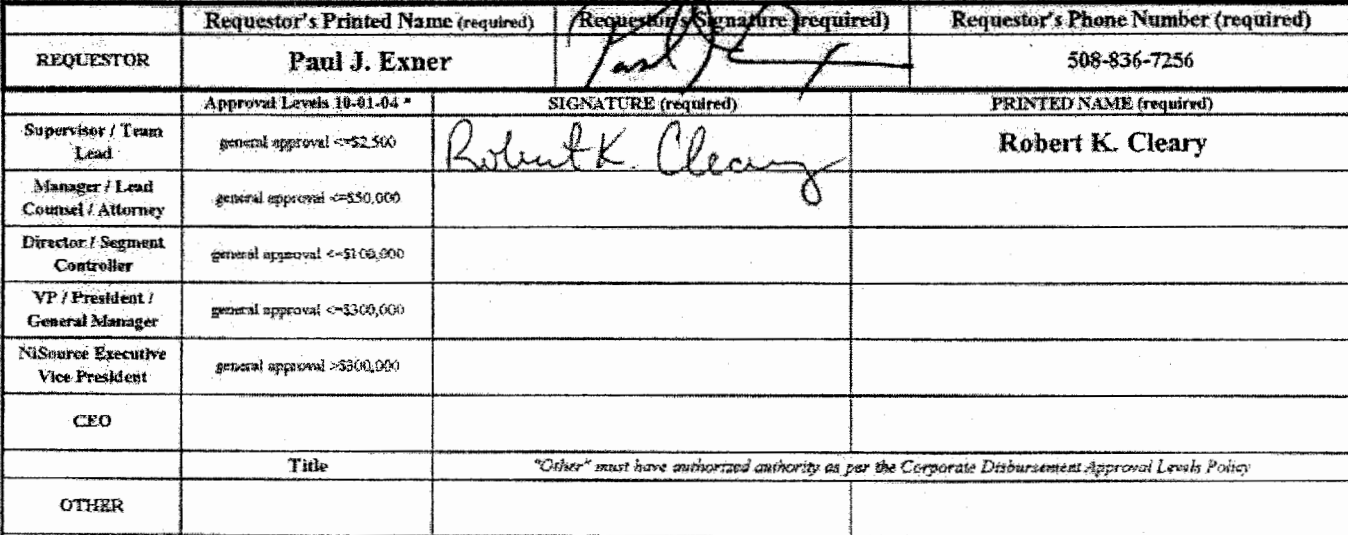 Requestor's Printed Name (required) Requestor's Signature (required) Requestor's Phone Number (required)
REQUESTOR Paul J. Exner Paul J. 508-836-7256
Approval Levels 10-01-04 * SIGNATURE (required) PRINTED NAME (required)
Supervisor / Team Lead general approval <=$2,500 Robert K. Cleary Robert K. Cleary
Manager / Lead Counsel / Attorney general approval <=$50,000
Director / Segment Controller general approval <=$100,000
VP / President / General Manager general approval <=$300,000
NiSource Executive Vice President general approval >$300,000
CEO
Title "Other" must have authorized authority as per the Corporate Disbursement Approval Levels Policy
OTHER